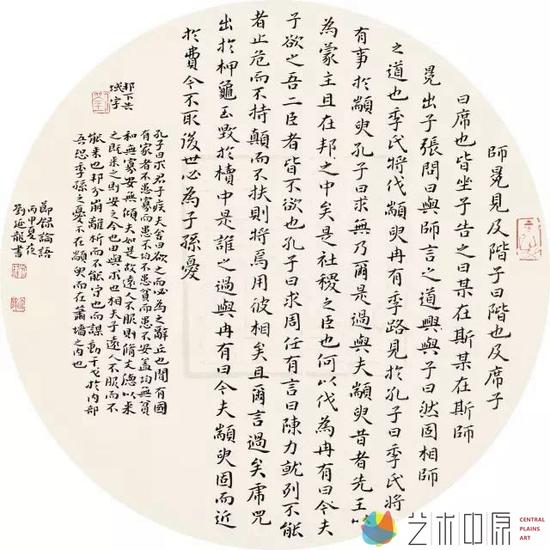 師冕見及階子曰階也及席子
曰席也皆坐子告之曰某在斯某在斯師
冕出子張問曰與師言之道與與子曰然固相師
之道也季氏將伐顓臾冉有季路見於孔子曰季氏將
有事於顓臾孔子曰求無乃爾是過與夫顓臾昔者先王以
為蒙主且在邦之中矣是社稷之臣也何以伐為冉有曰今夫
子欲之吾二臣者皆不欲也孔子曰求周任有言曰陳力就列不能
者止危而不持顛而不扶則將焉用彼相矣且爾言過矣虎兕
出於柙龜玉毀於櫝中是誰之過與冉有曰今夫顓臾固而近
於費今不取後世必為子孫憂
孔子曰求君子疾夫舍曰欲之而必為之辭丘也聞有國
有家者不患寡而患不均不患貧而患不安蓋均無貧
和無寡安無傾夫如是故遠人不服則脩文德以來
之既來之則安之今由與求也相夫子遠人不服而不
能來也邦分崩離析而不能守也而謀動干戈於內部
吾恐季孫之憂不在顓臾而在蕭墻之內也
邦下共
域字
節錄論語
丙申夏夜
劉延龍書
艺术中原
CENTRAL
PLAINS
ART